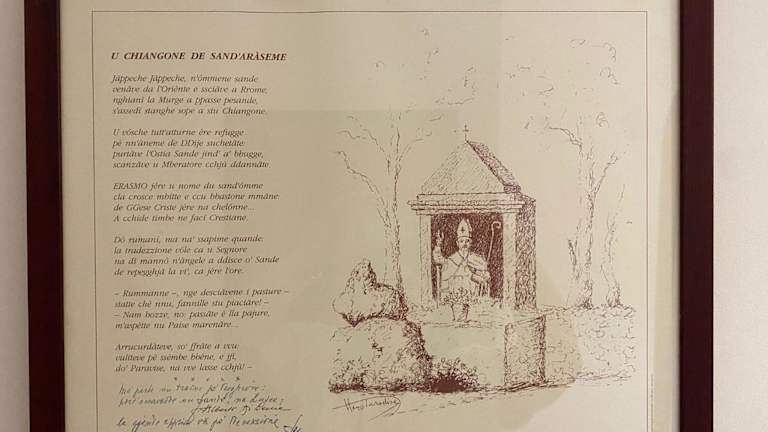 U CHIANGONE DE SAND'ARÀSEME
Jàppeche Jàppeche, n'ômmene sande
venàve da l'Oriènte e ssciàve a Rrome;
nghianì la Murge a ppasse pesande,
s'assedì stanghe sope a stu Chiangone.
U vôsche tutt'atturne ère refugge
pè nn'àneme de DDije suchetàte:
purtàve l'Ostia Sande jind' a' bbugge,
scanzàve u Mberatore cchjù ddannàte.
ERASMO jère u nome du sand'ômme
cla crosce mbitte e ccu bbastone mmàne:
de GGese Criste jère na chelônne...
A cchide timbe ne facì Crestiane.
Dô rumanì, ma na' ssapime quande:
la tradezzione vôle ca u Segnore
na dì mannò n'àngele a ddisce o' Sande
de repegghjà la vi', ca jère l'ore.
– Rummanne –, nge desciàvene i pasture –
statte chè nnu, fannille stu piaciàre! –
– Nam bozze, no: passàte è lla pajure,
m'aspètte nu Paise marenàre...
Arrucurdàteve, so' ffràte a vvu
vulìteve pè ssèmbe bbène, e jfì,
do' Paravise, na vve lasse cchjù! –